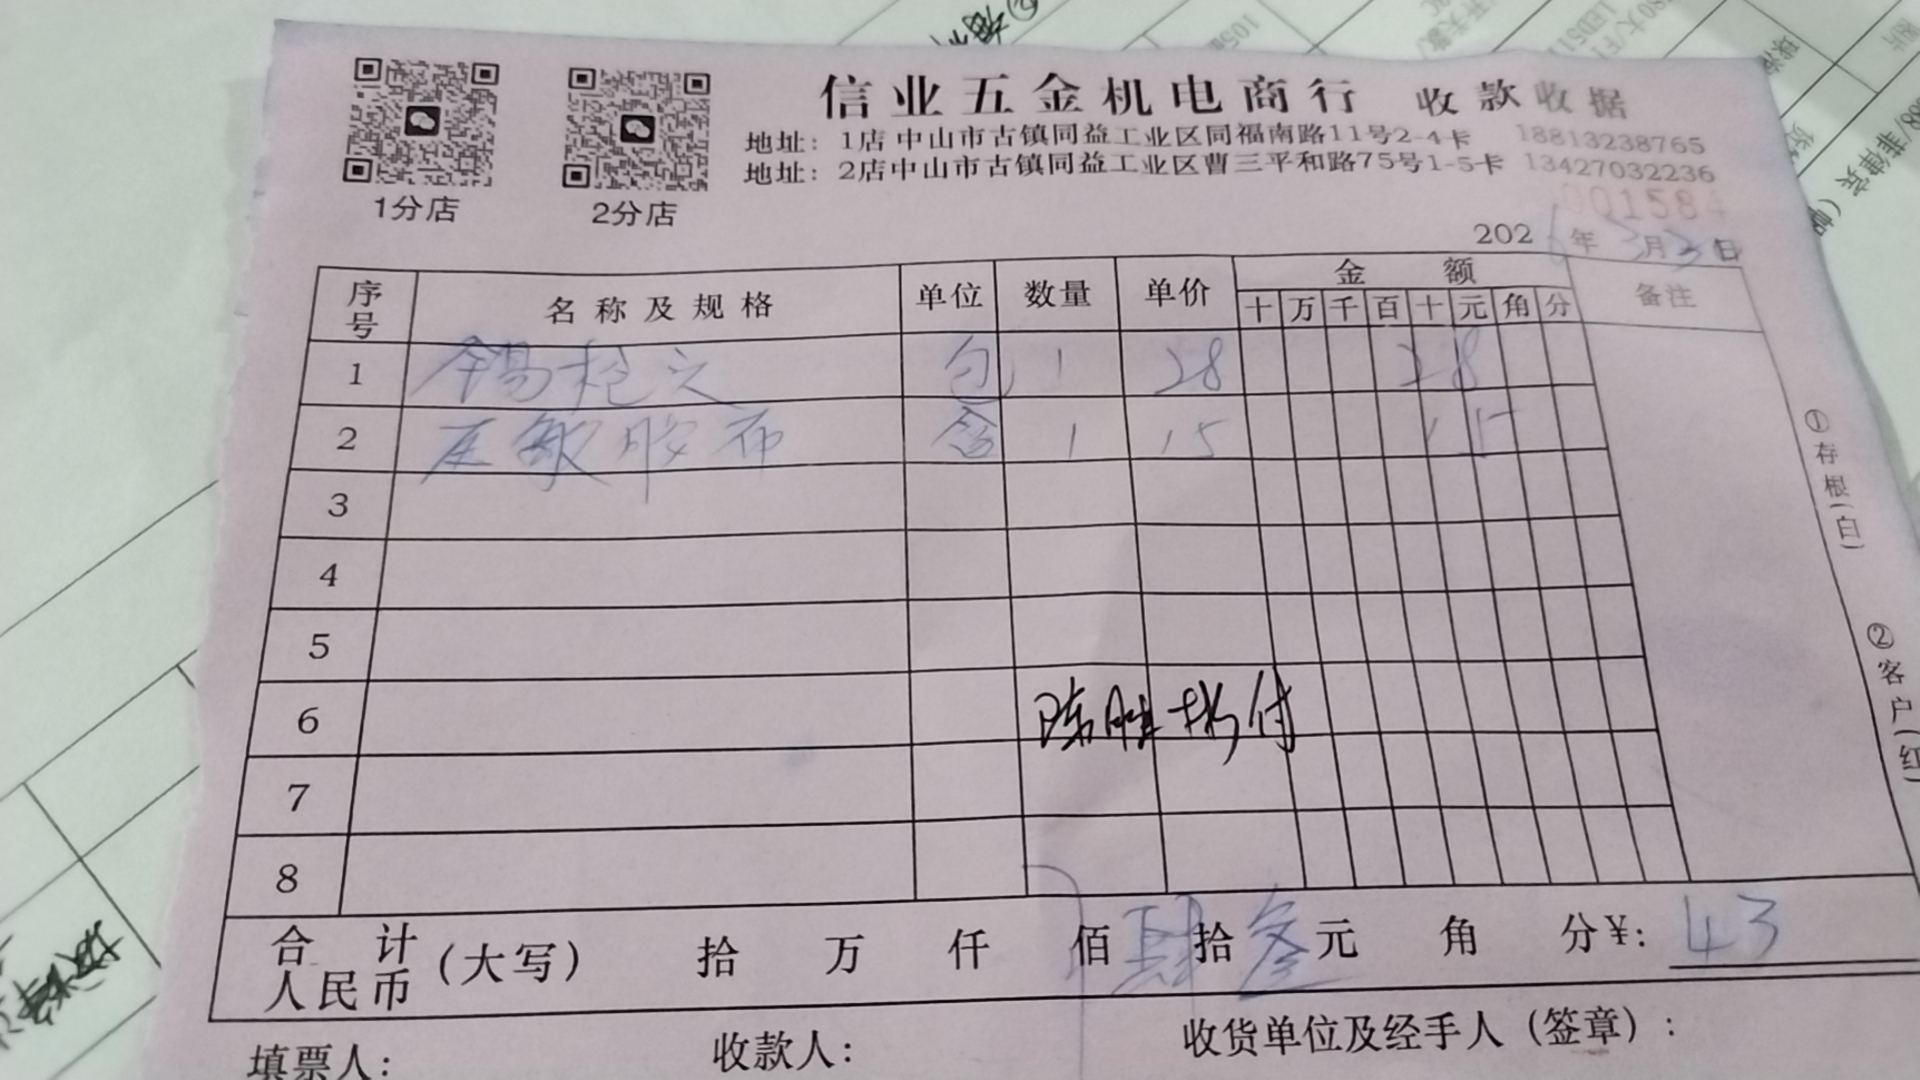 信业五金机电商行 收款收据
地址：1店中山市古镇同益工业区同福南路11号2-4卡 18813238765
地址：2店中山市古镇同益工业区曹三平和路75号1-5卡 13427032236
1分店 2分店
001584
2026年3月3日
序号 名称及规格 单位 数量 单价 金额 备注
十 万 千 百 十 元 角 分
1 锡枪头 包 1 28 28
2 压敏胶布 1 15 15
3
4
5
6 付
7
8
合计人民币 (大写) 拾 万 仟 佰 肆 拾 叁 元 角 分 ¥: 43
填票人: 收款人: 收货单位及经手人（签章）:
①存根(白)
②客户(红)